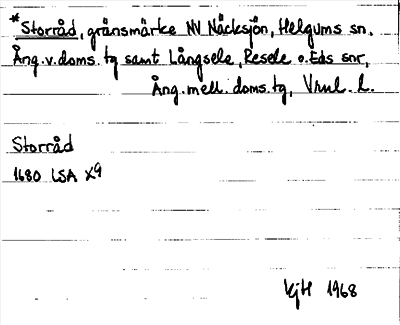 *Storråd, gränsmärke NV Näcksjön, Helgums sn.
Ång.v.doms.tg samt Långsele, Resele o. Eds snr,
Ång.mell.doms.tg, Vnl. L.
Storråd
1680 LSA X9
KjH 1968